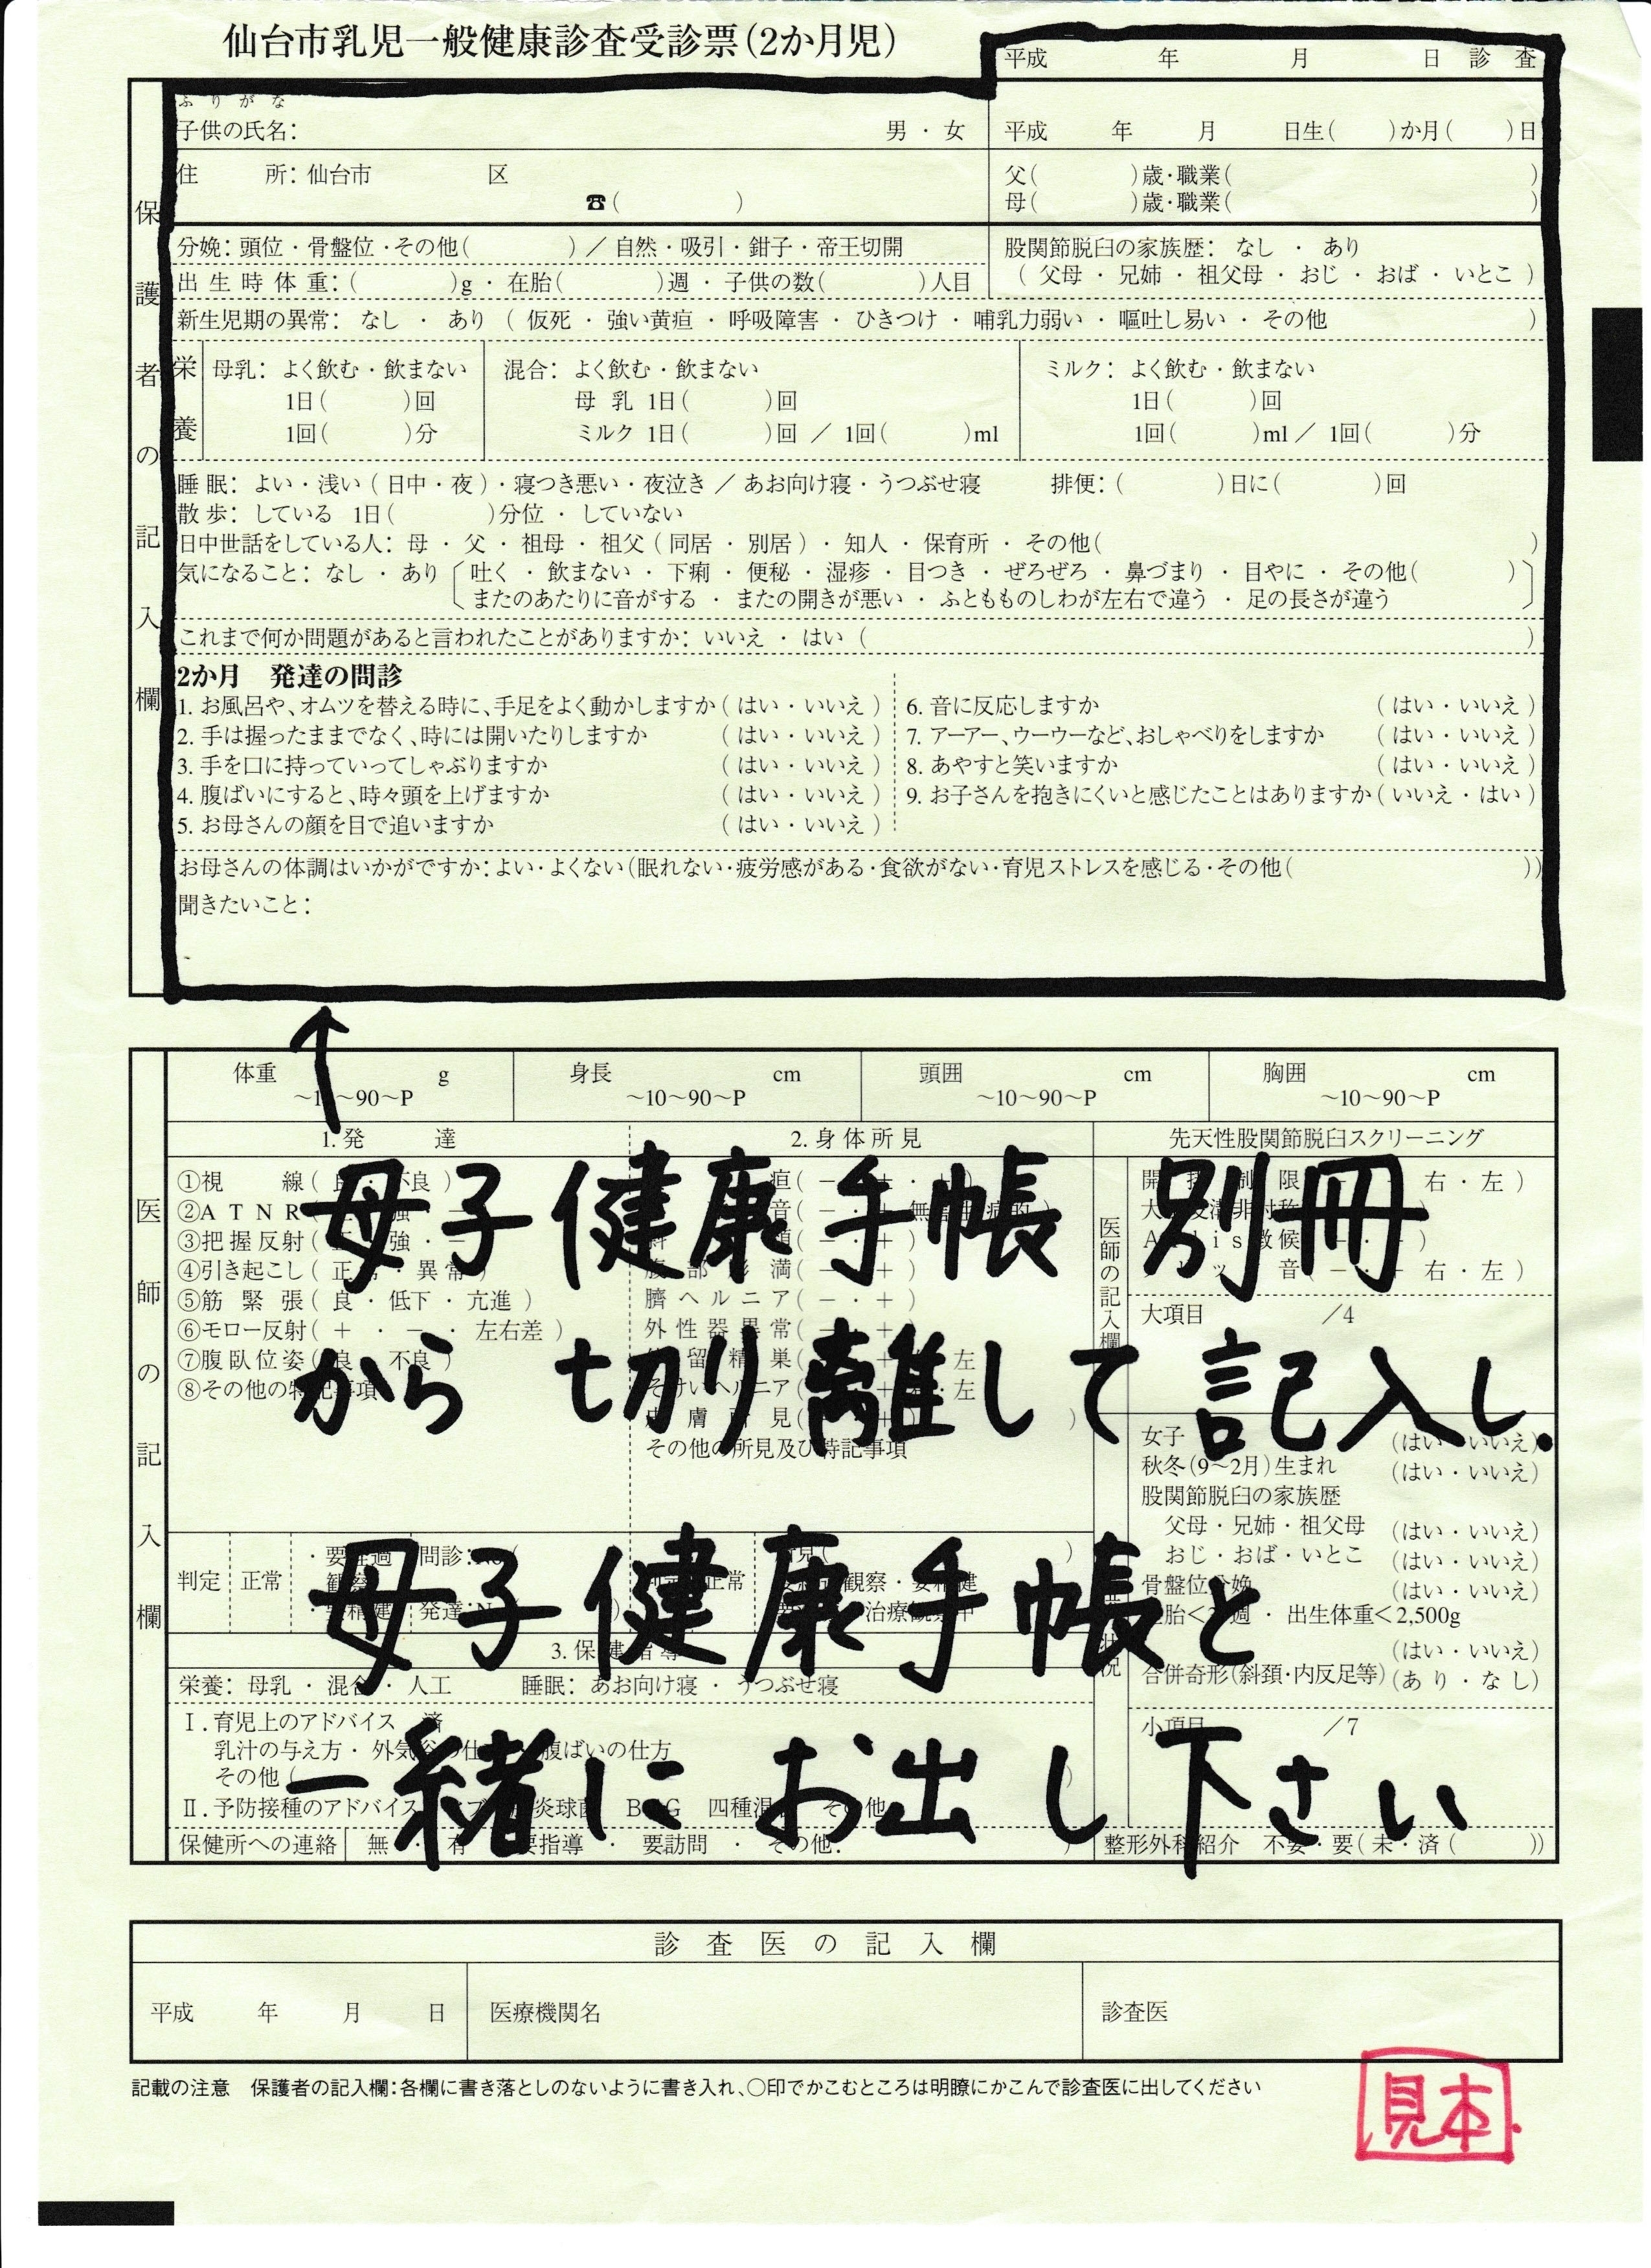 仙台市乳児一般健康診査受診票(2か月児)
平成 年 月 日 診 査
保護者の記入欄
ふりがな
子供の氏名: 男 ・ 女 平成 年 月 日生( )か月( )日
住 所: 仙台市 区
☎( )
父( )歳・職業( )
母( )歳・職業( )
分娩: 頭位 ・ 骨盤位 ・その他( ) ／ 自然 ・ 吸引 ・ 鉗子 ・ 帝王切開
出 生 時 体 重: ( )g ・ 在胎( )週 ・ 子供の数( )人目
股関節脱臼の家族歴: なし ・ あり
( 父母 ・ 兄姉 ・ 祖父母 ・ おじ ・ おば ・ いとこ )
新生児期の異常: なし ・ あり ( 仮死 ・ 強い黄疸 ・ 呼吸障害 ・ ひきつけ ・ 哺乳力弱い ・ 嘔吐し易い ・ その他 )
栄養
母乳: よく飲む ・ 飲まない
1日( )回
1回( )分
混合: よく飲む ・ 飲まない
母 乳 1日( )回
ミルク 1日( )回 ／ 1回( )ml
ミルク: よく飲む ・ 飲まない
1日( )回
1回( )ml ／ 1回( )分
睡 眠: よい ・ 浅い ( 日中 ・ 夜 ) ・ 寝つき悪い ・ 夜泣き ／ あお向け寝 ・ うつぶせ寝 排便: ( )日に( )回
散 歩: している 1日( )分位 ・ していない
日中世話をしている人: 母 ・ 父 ・ 祖母 ・ 祖父 ( 同居 ・ 別居 ) ・ 知人 ・ 保育所 ・ その他( )
気になること: なし ・ あり 〔吐く ・ 飲まない ・ 下痢 ・ 便秘 ・ 湿疹 ・ 目つき ・ ぜろぜろ ・ 鼻づまり ・ 目やに ・ その他( )
またのあたりに音がする ・ またの開きが悪い ・ ふともものしわが左右で違う ・ 足の長さが違う〕
これまで何か問題があると言われたことがありますか: いいえ ・ はい ( )
2か月 発達の問診
1. お風呂や、オムツを替える時に、手足をよく動かしますか ( はい ・ いいえ )
2. 手は握ったままでなく、時には開いたりしますか ( はい ・ いいえ )
3. 手を口に持っていってしゃぶりますか ( はい ・ いいえ )
4. 腹ばいにすると、時々頭を上げますか ( はい ・ いいえ )
5. お母さんの顔を目で追いますか ( はい ・ いいえ )
6. 音に反応しますか ( はい ・ いいえ )
7. アーアー、ウーウーなど、おしゃべりをしますか ( はい ・ いいえ )
8. あやすと笑いますか ( はい ・ いいえ )
9. お子さんを抱きにくいと感じたことはありますか ( いいえ ・ はい )
お母さんの体調はいかがですか: よい・よくない(眠れない・疲労感がある・食欲がない・育児ストレスを感じる・その他( ))
聞きたいこと:
医師の記入欄
体重 g 身長 cm 頭囲 cm 胸囲 cm
〜90〜P 〜10〜90〜P 〜10〜90〜P 〜10〜90〜P
1. 発 達 2. 身 体 所 見 先天性股関節脱臼スクリーニング
母子健康手帳 別冊
から 切り離して 記入し.
母子健康手帳と
一緒に お出し下さい
①視 線(
②A T N R
③把 握 反 射 (
④引き起こし ( 正 常 ・ 異 常 )
⑤筋 緊 張 ( 良 ・ 低下 ・ 亢進 )
⑥モロー反射 ( + ・ − ・ 左右差 )
⑦腹 臥 位 姿
⑧その他の
臍 ヘ ル ニ ア ( − ・ + )
その他の所見及び特記事項
医師の記入欄
右 ・ 左 )
右 ・ 左 )
大項目 /4
女子 (はい いいえ)
秋冬(9〜2月)生まれ (はい ・ いいえ)
股関節脱臼の家族歴
父母 ・ 兄姉 ・ 祖父母 (はい ・ いいえ)
おじ ・ おば ・ いとこ (はい ・ いいえ)
骨盤位分娩 (はい ・ いいえ)
週 ・ 出生体重＜2,500g
(はい ・ いいえ)
合併奇形(斜頚・内反足等) (あ り ・ な し)
小項目 /7
判定 正常 問診: 正常 観察 ・
発達:
3. 保 健 指 導
栄養: 母乳 ・ 混合 ・ 人工 睡眠: あお向け寝 ・ うつぶせ寝
Ⅰ. 育児上のアドバイス 済
乳汁の与え方 ・ 外気浴の仕 腹ばいの仕方
その他 (
Ⅱ. 予防接種のアドバイス 四種混 その他
保健所への連絡 無 ・ 有 要指導 ・ 要訪問 ・ その他: )
整形外科紹介 不要 ・ 要( 未 ・ 済 ( ))
診 査 医 の 記 入 欄
平成 年 月 日 医療機関名 診査医
記載の注意 保護者の記入欄:各欄に書き落としのないように書き入れ、○印でかこむところは明瞭にかこんで診査医に出してください
見本